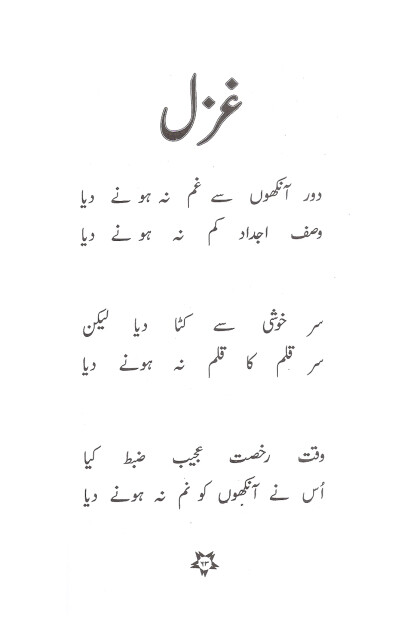 غزل
دور آنکھوں سے غم نہ ہونے دیا
وصف اجداد کم نہ ہونے دیا
سر خوشی سے کٹا دیا لیکن
سر قلم کا قلم نہ ہونے دیا
وقت رخصت عجیب ضبط کیا
اُس نے آنکھوں کو نم نہ ہونے دیا
۶۳